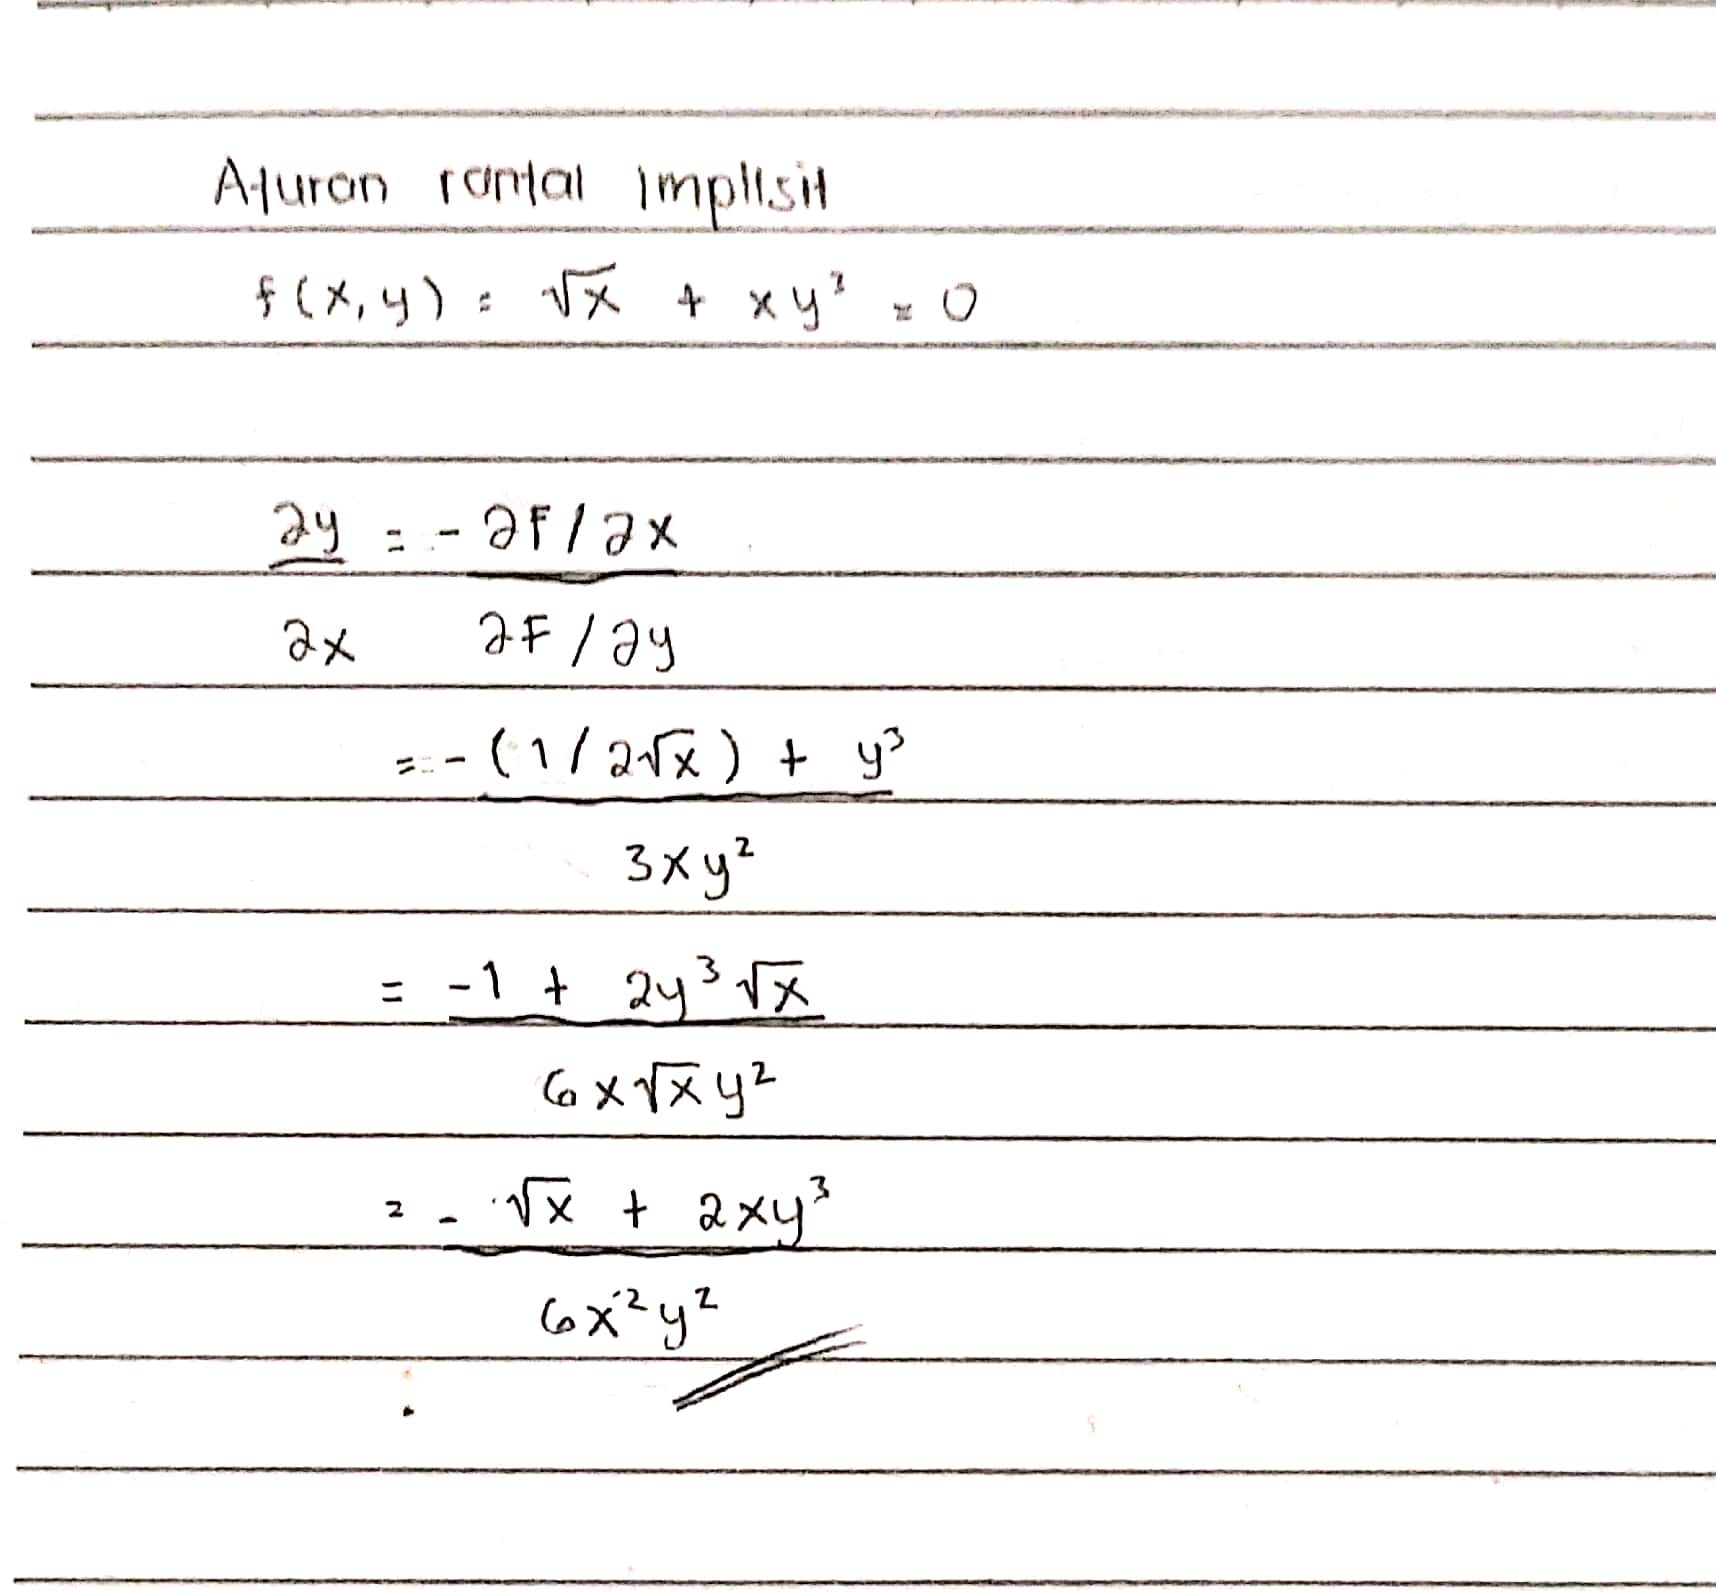 Aturan rantai implisit
f(x,y) = √x + xy³ = 0
∂y = - ∂F/∂x
∂x ∂F/∂y
= - (1/2√x) + y³
3xy²
= -1 + 2y³√x
6x√xy²
= - √x + 2xy³
6x²y²